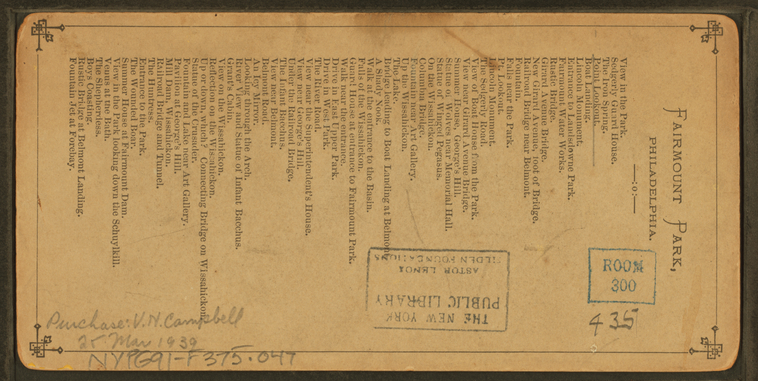 FAIRMOUNT PARK,
PHILADELPHIA.
—:o:—
View in the Park.
Sedgely Guard House.
The Iron Spring.
Point Lookout.
Boat Landing.
Lincoln Monument.
Entrance to Lansdowne Park.
Fairmount Water Works.
Rustic Bridge.
Girard Avenue Bridge.
New Girard Avenue, root of Bridge.
Railroad Bridge near Belmont.
Fountain.
Falls near the Park.
Pt. Lookout.
Lincoln Monument.
The Sedgely Road.
View of Boat House from the Park.
View near Girard Avenue Bridge.
Summer House, George's Hill.
Soldiers and Volunteers, Memorial Hall.
Statue of Winged Pegasus.
On the Wissahickon.
Columbia Bridge.
Fountain near Art Gallery.
Up the Wissahickon.
The Log Cabin.
Bridge leading to Boat Landing at Belmont
Shady Nook.
Walk at the entrance to the Basin.
Falls of the Wissahickon.
Fountain at entrance to Fairmount Park.
Walk near the entrance.
Drive in East Upper Park.
Drive in West Park.
The River Road.
View near the Superintendent's House.
View near George's Hill.
Under the Railroad Bridge.
The Indian Wissahickon.
View near Belmont.
Belmont.
Looking through the Arch.
River View and Statue of Infant Bacchus.
Grant's Cabin.
View on the Wissahickon.
Reflection on the Wissahickon.
Up or down, which? Connecting Bridge on Wissahickon
Statue of the Crusader.
Fountain and Lake near Art Gallery.
Pavilion at George's Hill.
Mill on the Wissahickon.
Railroad Bridge and Tunnel.
The Huntress.
Entrance to the Park.
The Wounded Boar.
Summer House at Fairmount Dam.
View in the Park looking down the Schuylkill.
The Shepherdess.
Venus at the Bath.
Boys Coasting.
Rustic Bridge at Belmont Landing.
Fountain Jet at Forebay.
ROOM
300
435
THE NEW YORK
PUBLIC LIBRARY
ASTOR LENOX
TILDEN FOUNDATIONS
Purchase: V.H. Campbell
25 Mar 1939
NYPG91-F375-047